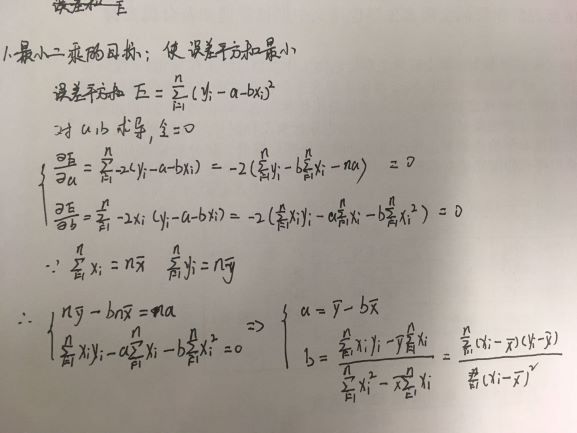 误差和 E
1.最小二乘的目标: 使误差平方和最小
误差平方和 E = \sum_{i=1}^{n} (y_i - a - bx_i)^2
对 a,b 求导,令=0
\frac{∂E}{∂a} = \sum_{i=1}^{n} -2(y_i - a - bx_i) = -2(\sum_{i=1}^{n} y_i - b\sum_{i=1}^{n} x_i - na) = 0
\frac{∂E}{∂b} = \sum_{i=1}^{n} -2x_i (y_i - a - bx_i) = -2(\sum_{i=1}^{n} x_i y_i - a\sum_{i=1}^{n} x_i - b\sum_{i=1}^{n} x_i^2) = 0
∵ \sum_{i=1}^{n} x_i = n\bar{x} \sum_{i=1}^{n} y_i = n\bar{y}
∴ { n\bar{y} - bn\bar{x} = na ⇒ { a = \bar{y} - b\bar{x}
\sum_{i=1}^{n} x_i y_i - a\sum_{i=1}^{n} x_i - b\sum_{i=1}^{n} x_i^2 = 0 b = \frac{\sum_{i=1}^{n} x_i y_i - \bar{y}\sum_{i=1}^{n} x_i}{\sum_{i=1}^{n} x_i^2 - \bar{x}\sum_{i=1}^{n} x_i} = \frac{\sum_{i=1}^{n} (x_i - \bar{x})(y_i - \bar{y})}{\sum_{i=1}^{n} (x_i - \bar{x})^2}